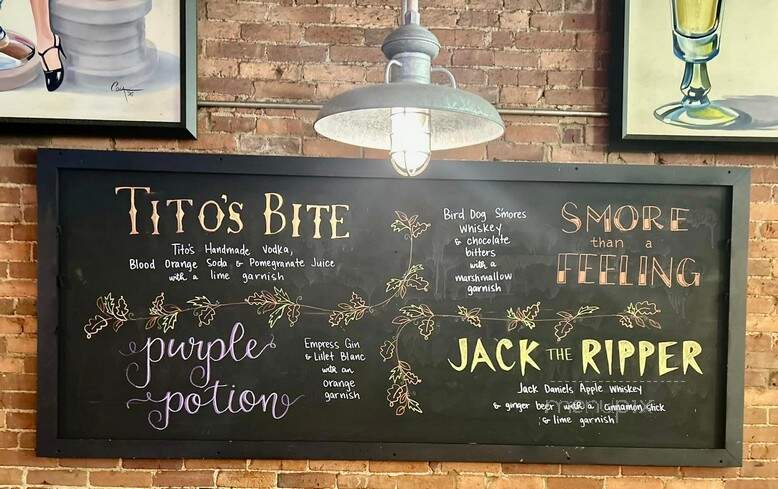 TITO'S BITE
Tito's Handmade Vodka,
Blood Orange Soda & Pomegranate Juice
with a lime garnish
Bird Dog S'mores
Whiskey
& chocolate
bitters
with a
marshmallow
garnish
SMORE
than a
FEELING
purple
potion
Empress Gin
& Lillet Blanc
with an
orange
garnish
JACK THE RIPPER
Jack Daniels Apple Whiskey
& ginger beer with a cinnamon stick
& lime garnish
menupix